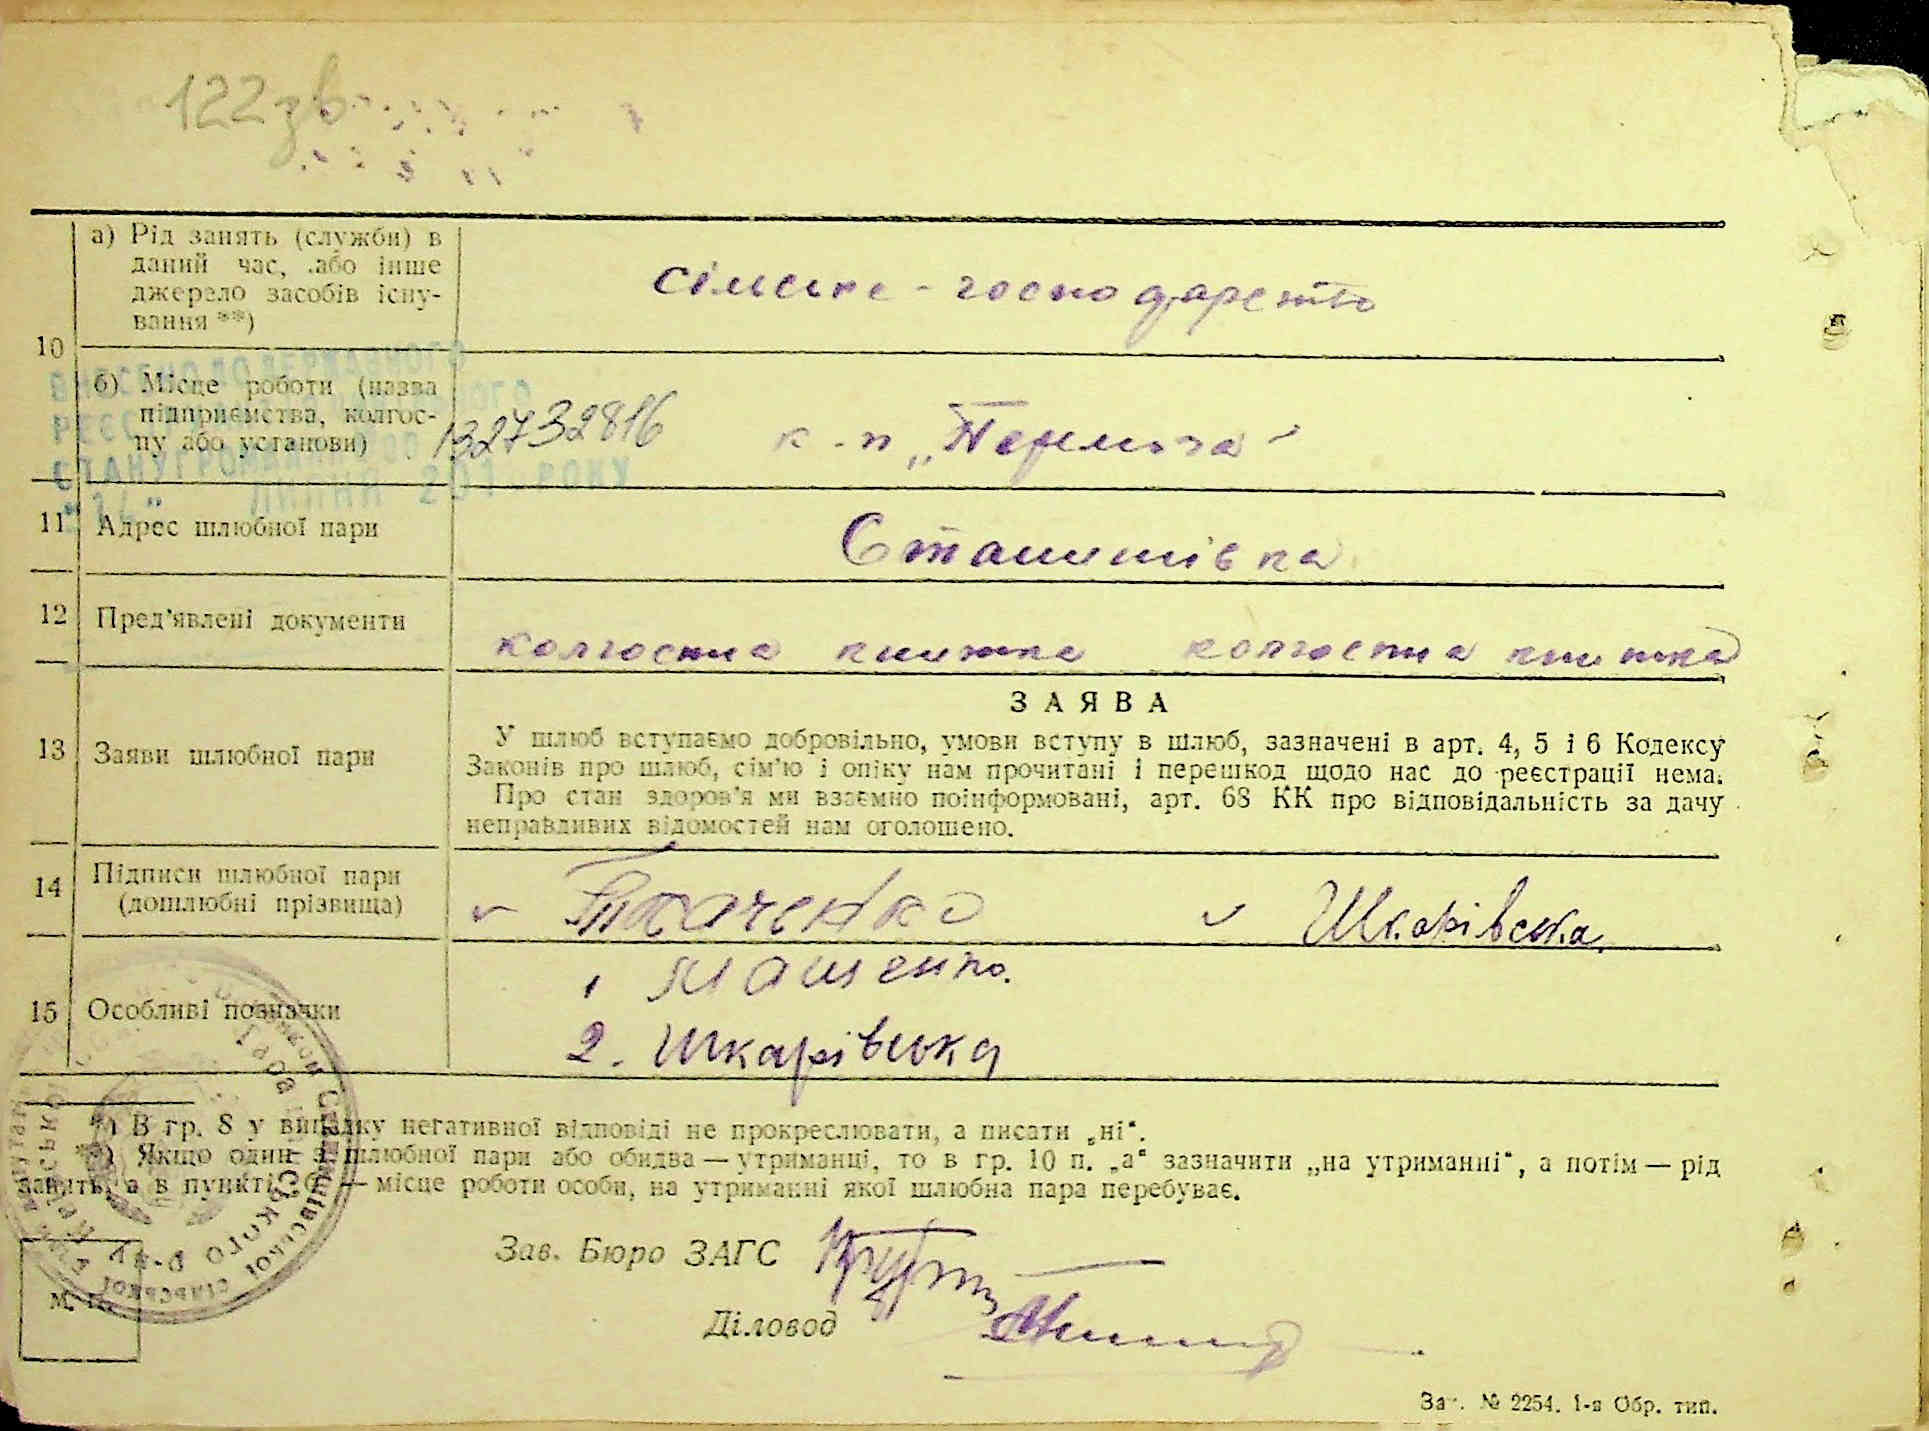 122зв
а) Рід занять (служби) в
даний час, або інше
джерело засобів існу-
вання **)
сільське - господарство
10
б) Місце роботи (назва
підприємства, колгос-
пу або установи)
132732816
к-п „Перемога"
ВНЕСЕНО ДО ДЕРЖАВНОГО
РОКУ
11 Адрес шлюбної пари
Сташишівка
12 Пред'явлені документи
колгоспна книжка колгоспна книжка
13 Заяви шлюбної пари
ЗАЯВА
У шлюб вступаємо добровільно, умови вступу в шлюб, зазначені в арт. 4, 5 і 6 Кодексу
Законів про шлюб, сім'ю і опіку нам прочитані і перешкод щодо нас до реєстрації нема.
Про стан здоров'я ми взаємно поінформовані, арт. 68 КК про відповідальність за дачу
неправдивих відомостей нам оголошено.
14 Підписи шлюбної пари
(дошлюбні прізвища)
Ткаченко Шкарівська
15 Особливі позначки
1
2. Шкарівська
*) В гр. 8 у випадку негативної відповіді не прокреслювати, а писати „ні".
**) Якщо один з шлюбної пари або обидва — утриманці, то в гр. 10 п. „а" зазначити „на утриманні", а потім — рід
занять, а в пункті „б" — місце роботи особи, на утриманні якої шлюбна пара перебуває.
Зав. Бюро ЗАГС
Діловод
М. П.
Зак. № 2254. 1-а Обр. тип.